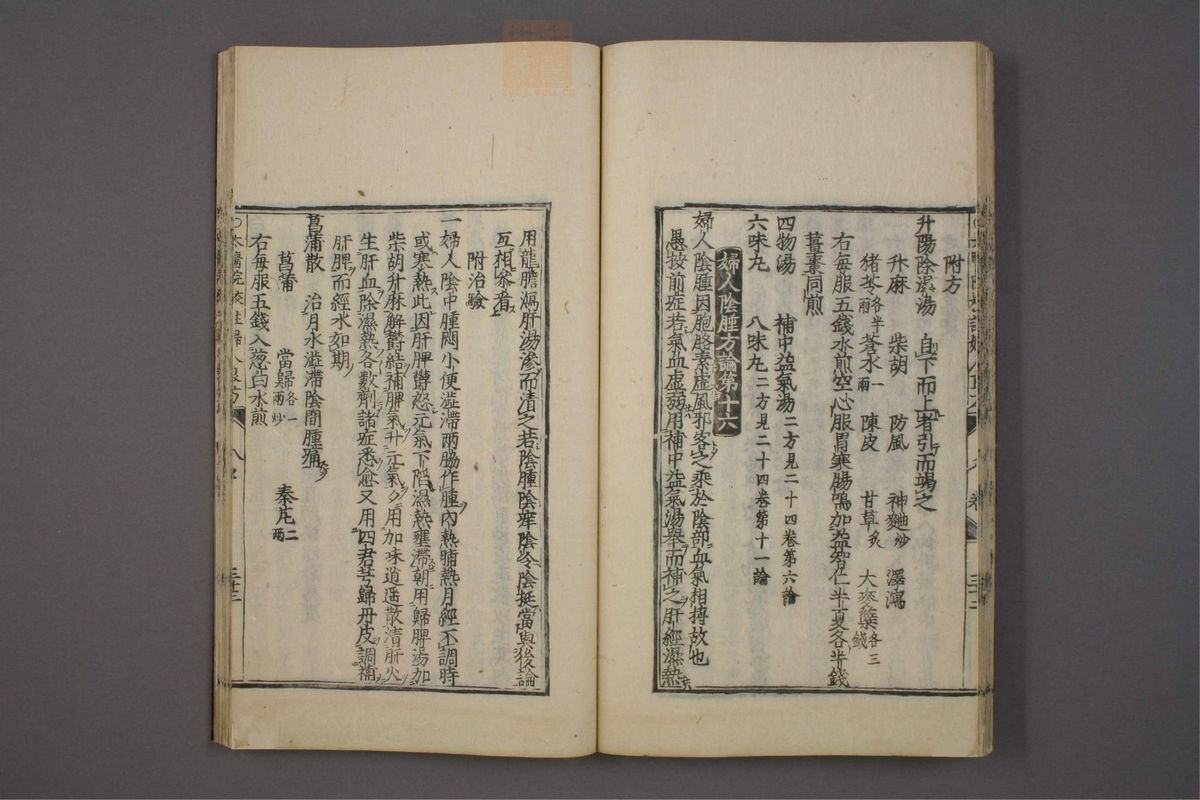 附方
升陽除濕湯　自下而上者引而竭之
升麻　柴胡　防風　神麯炒　澤瀉
猪苓各半兩　蒼朮一兩　陳皮　甘草炙　大麥蘗各三錢
右每服五錢水煎空心服胃寒腸鳴加益智仁半夏各半錢
薑棗同煎
四物湯　補中益氣湯二方見二十四卷第六論
六味丸　八味丸二方見二十四卷第十一論
婦人陰腫方論第十六
婦人陰腫因胞胳素虛風邪客之乘於陰部血氣相搏故也
愚按前症若氣血虛弱用補中益氣湯舉而補之肝經濕熱
用龍膽瀉肝湯滲而清之若陰腫陰痒陰冷陰挺當與後論
互相參看
附治驗
一婦人陰中腫悶小便澁滯兩脇作腫內熱晡熱月經不調時
或寒熱此因肝脾鬱怒元氣下陷濕熱壅滯朝用歸脾湯加
柴胡升麻解鬱結補脾氣升元氣夕用加味逍遥散清肝火
生肝血除濕熱各數劑諸症悉愈又用四君芎歸丹皮調補
肝脾而經水如期
菖蒲散　治月水澁滯陰間腫痛
菖蒲　當歸各一兩炒　秦艽二兩
右每服五錢入葱白水煎
太醫院校註婦人良方　八　三十三